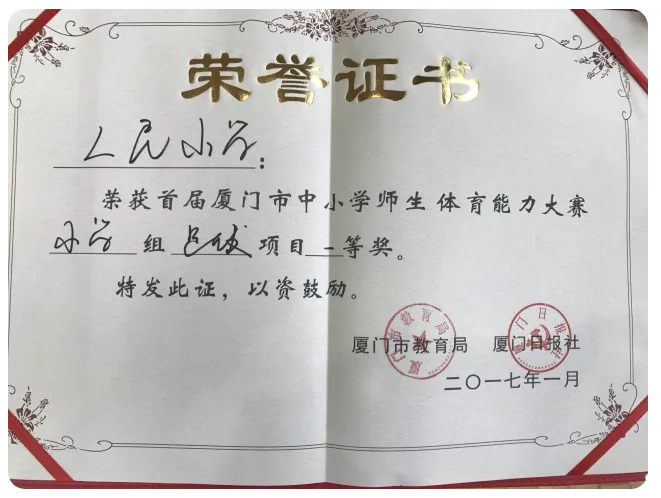 荣誉证书
人民小学：
荣获首届厦门市中小学师生体育能力大赛
小学组 项目一等奖。
特发此证，以资鼓励。
厦门市教育局 厦门日报社
二〇一七年一月
厦门市教育局
厦门日报社